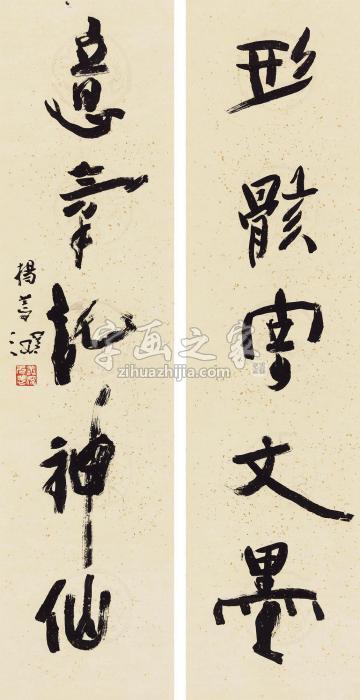 形骸寄文墨
意氣託神仙
楊善深
字画之家
zihuazhijia.com